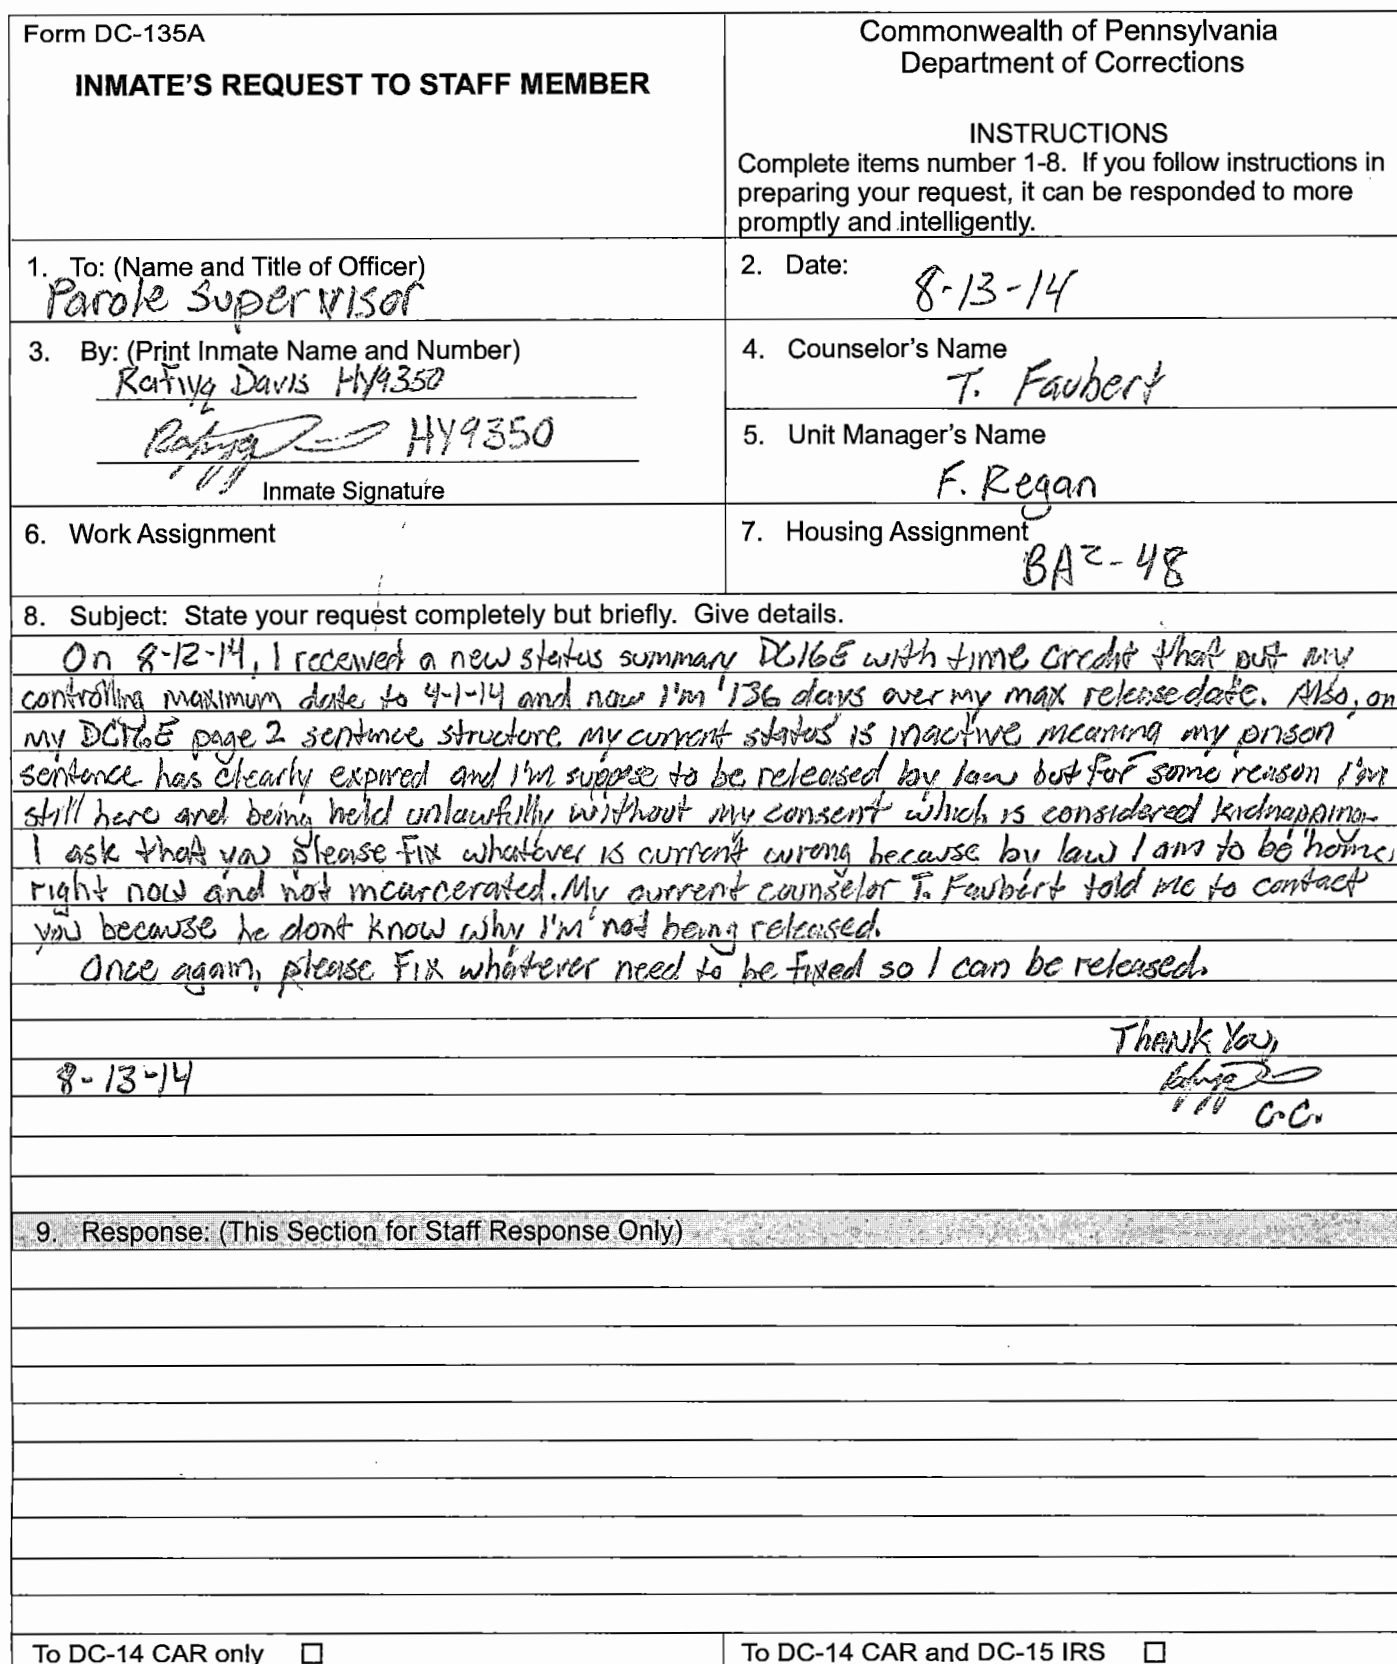 Form DC-135A
INMATE'S REQUEST TO STAFF MEMBER
Commonwealth of Pennsylvania
Department of Corrections
INSTRUCTIONS
Complete items number 1-8. If you follow instructions in
preparing your request, it can be responded to more
promptly and intelligently.
1. To: (Name and Title of Officer)
Parole Supervisor
2. Date:
8-13-14
3. By: (Print Inmate Name and Number)
Rafiyq Davis HY9350
HY9350
Inmate Signature
4. Counselor's Name
T. Faubert
5. Unit Manager's Name
F. Regan
6. Work Assignment
7. Housing Assignment
BA2-48
8. Subject: State your request completely but briefly. Give details.
On 8-12-14, I received a new status summary DC16E with time credit that put my
controlling maximum date to 4-1-14 and now I'm 136 days over my max release date. Also, on
my DC16E page 2 sentence structure my current status is inactive meaning my prison
sentence has clearly expired and I'm suppose to be released by law but for some reason I'm
still here and being held unlawfully without my consent which is considered kidnapping.
I ask that you please fix whatever is current wrong because by law I am to be home,
right now and not incarcerated. My current counselor T. Faubert told me to contact
you because he dont know why I'm not being released.
Once again, please Fix whatever need to be fixed so I can be released.
Thank You,
8-13-14
C.C.
9. Response: (This Section for Staff Response Only)
To DC-14 CAR only
To DC-14 CAR and DC-15 IRS